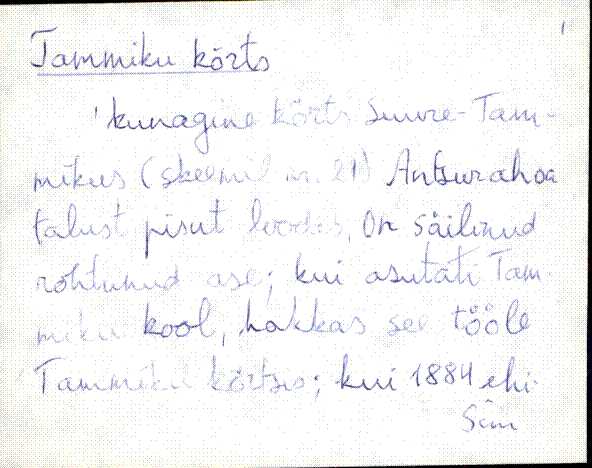 Tammiku kõrts
'kunagine kõrts Suure-Tam-
mikus (skeemil nr. 21) Antsurahoa
talust pisut loodes, On säilinud
rohtunud ase; kui asutati Tam-
miku kool, hakkas see tööle
Tammiku kõrtsis; kui 1884 ehi-